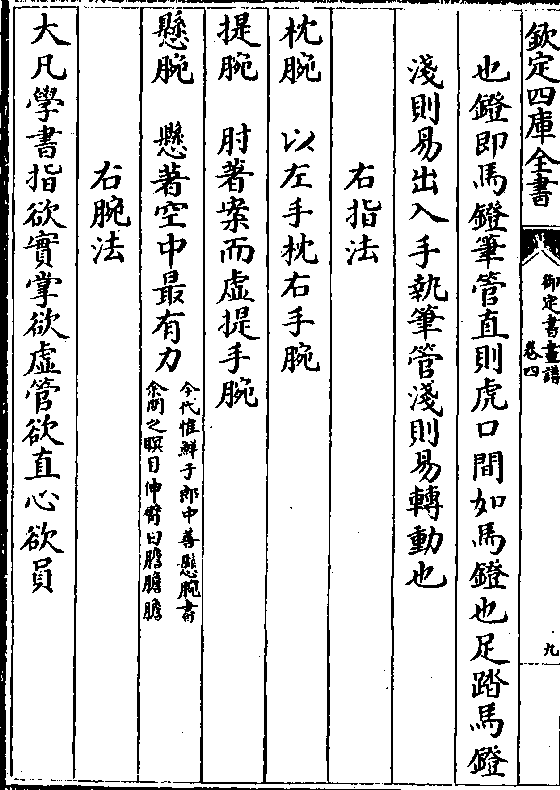 欽定四庫全書
御定書畫譜
卷四
九
也鐙即馬鐙筆管直則虎口間如馬鐙也足踏馬鐙
淺則易出入手執筆管淺則易轉動也
右指法
枕腕　以左手枕右手腕
提腕　肘著案而虛提手腕
懸腕　懸著空中最有力
今代惟鮮于郎中善懸腕書
余問之瞑目伸臂曰膽膽膽
右腕法
大凡學書指欲實掌欲虛管欲直心欲員